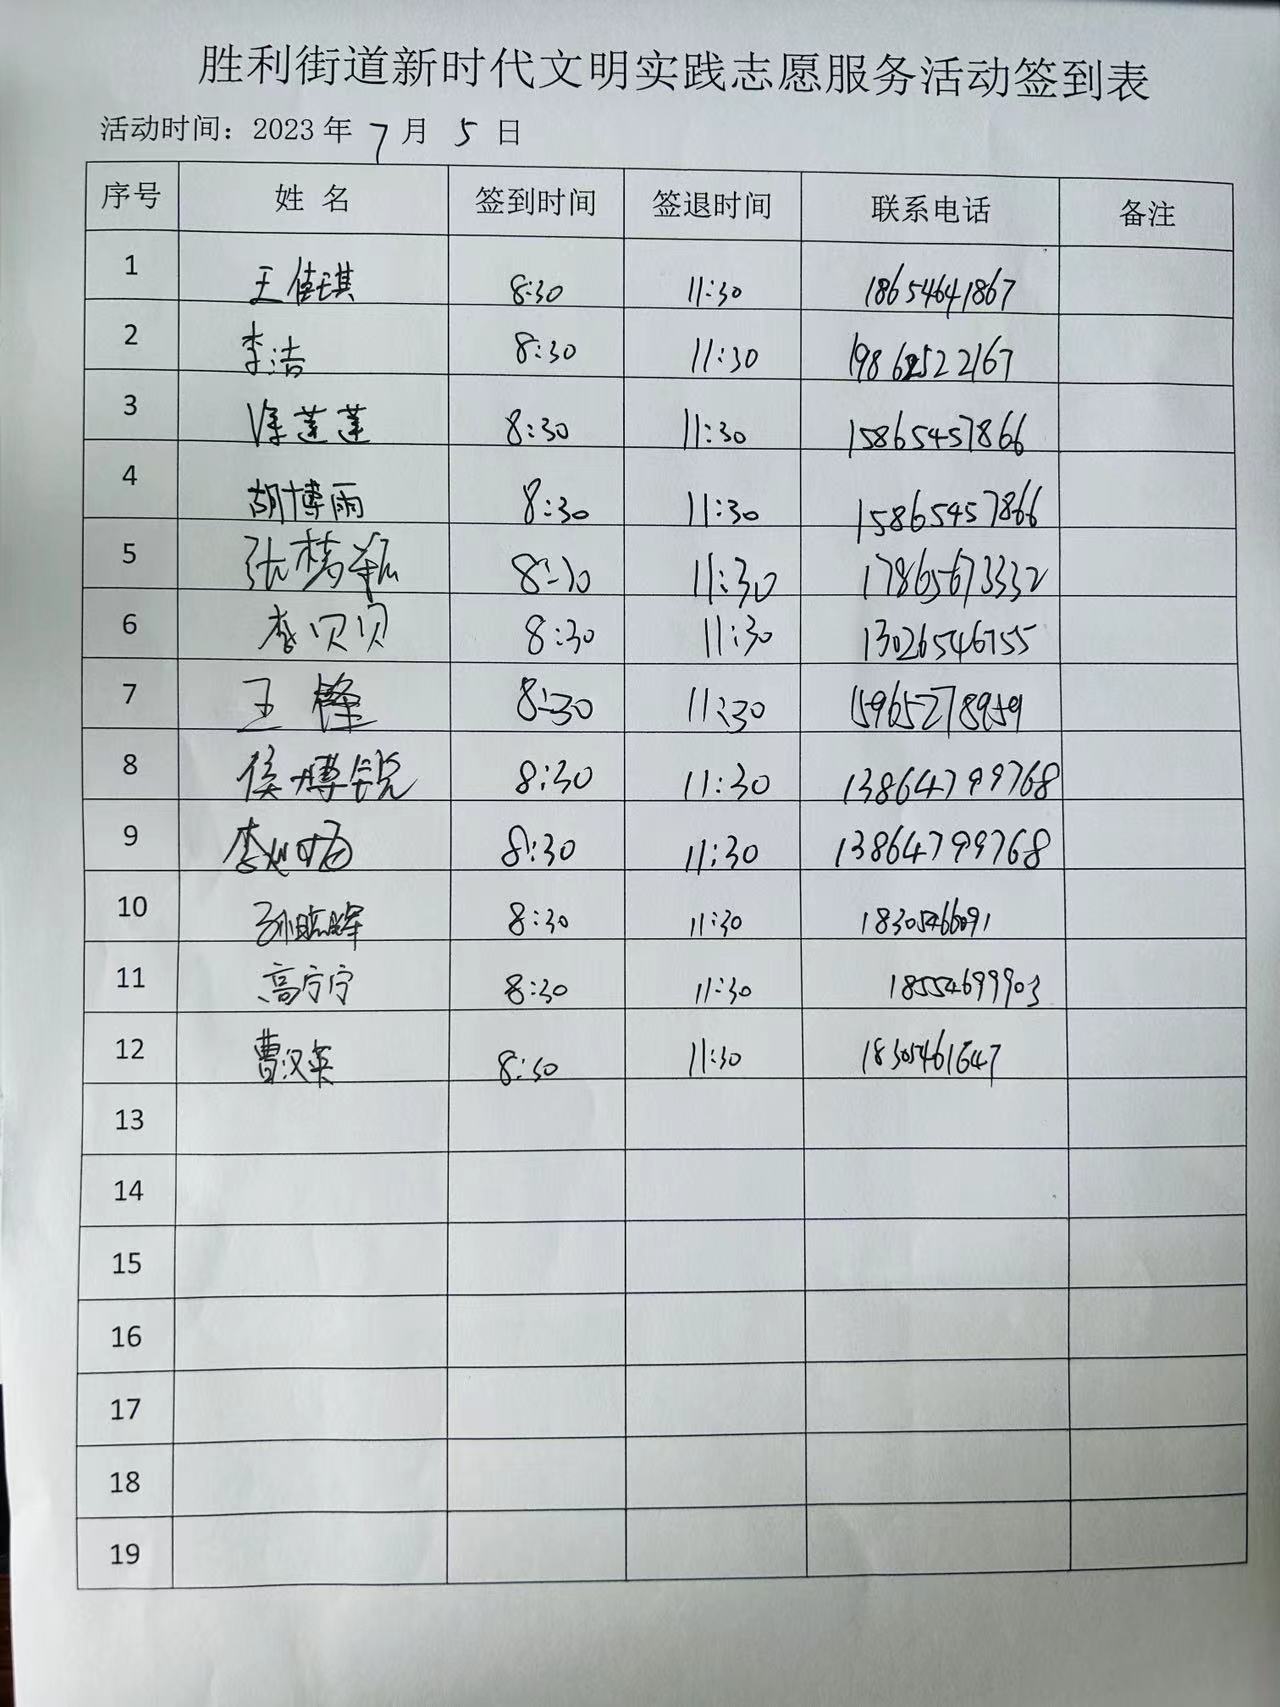 胜利街道新时代文明实践志愿服务活动签到表
活动时间：2023 年 7 月 5 日
序号 姓 名 签到时间 签退时间 联系电话 备注
1 王佳琪 8:30 11:30 18654641867
2 李洁 8:30 11:30 1986522167
3 徐莲莲 8:30 11:30 15865457866
4 胡博雨 8:30 11:30 15865457866
5 张 8:30 11:30 17865673332
6 李贝贝 8:30 11:30 13026546755
7 王锋 8:30 11:30 15965278959
8 侯博锐 8:30 11:30 13864799768
9 李 8:30 11:30 13864799768
10 孙晓晖 8:30 11:30 18305466091
11 高宁宁 8:30 11:30 18554699903
12 曹汉英 8:30 11:30 18305461647
13
14
15
16
17
18
19